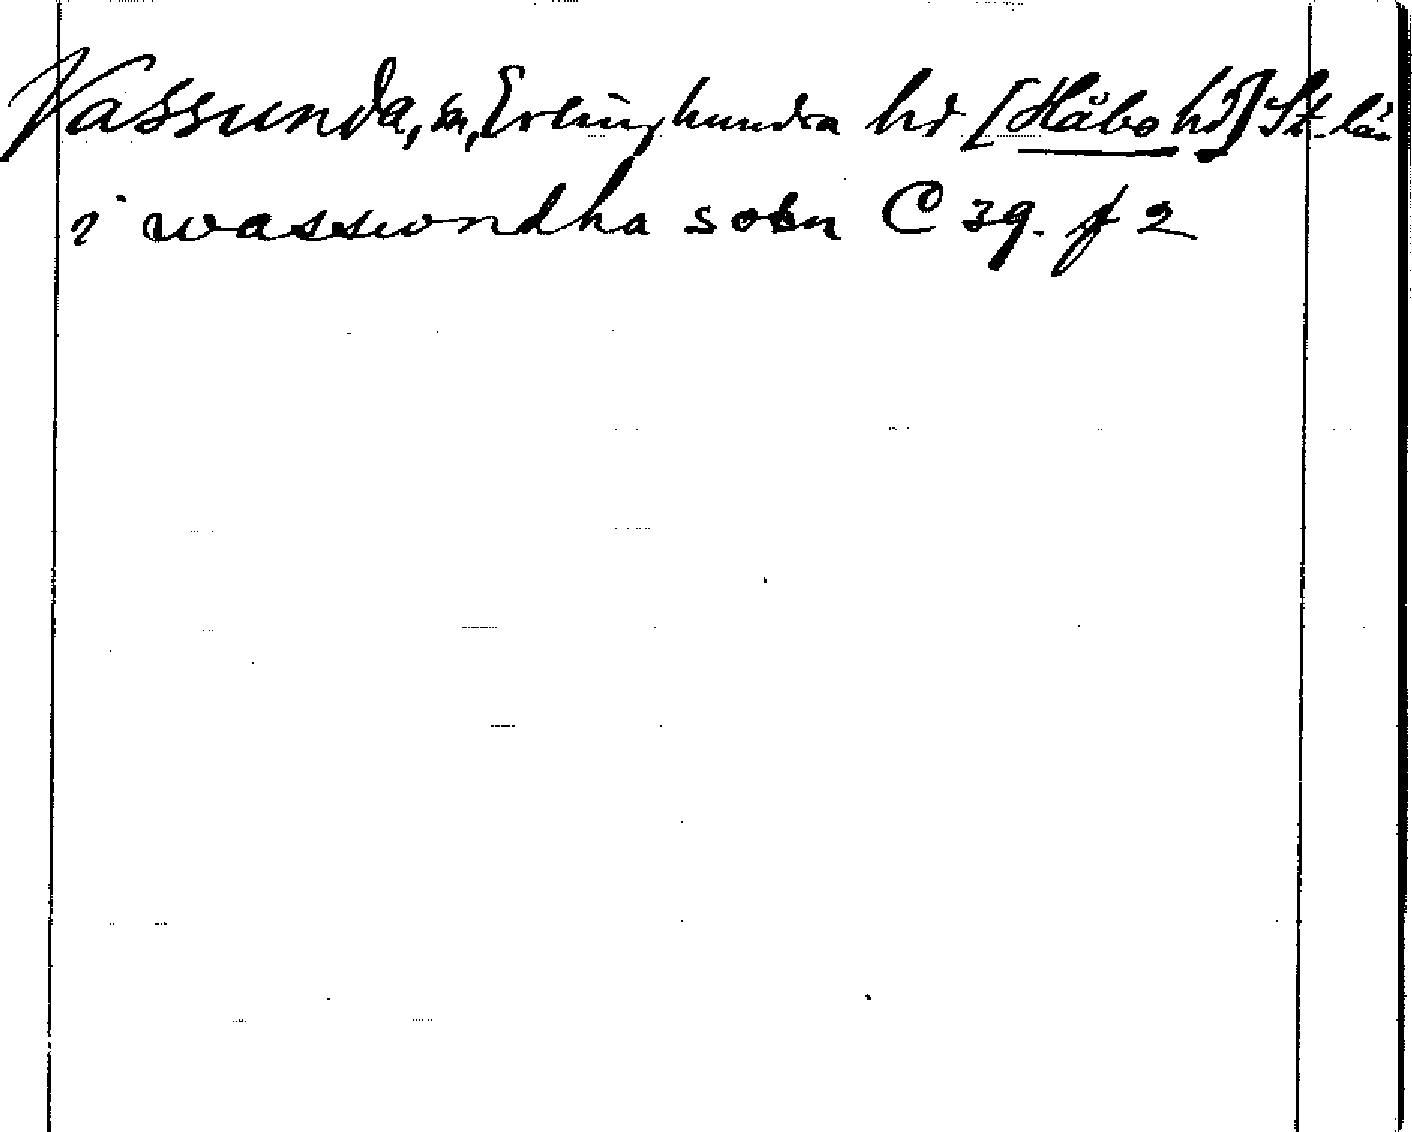 Vassunda, sn, Erlinghundra hd [Håbo hd] St. län
i wassondha sokn C 39. f 2